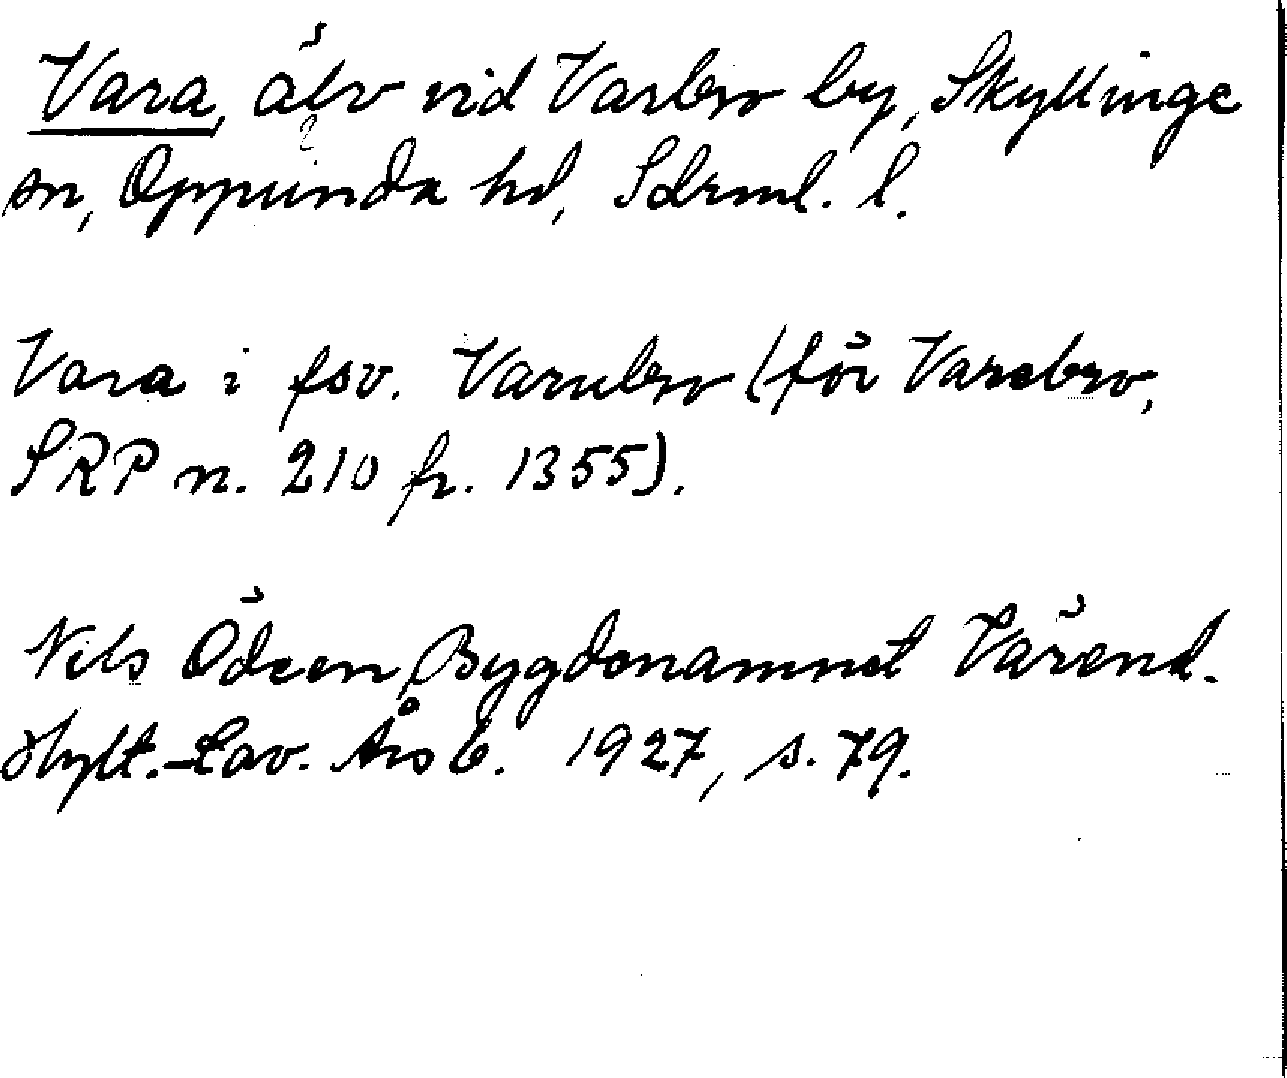 Vara, älv vid Varbro by, Skyllinge
sn, Oppunda hd, Sdrml. l.
Vara i fsv. Varubro (för Varebro,
SRP n. 210 fr. 1355).
Nils Ödeen, Bygdenamnet Värend.
Hylt.-Cav. Årsb. 1927, s. 79.